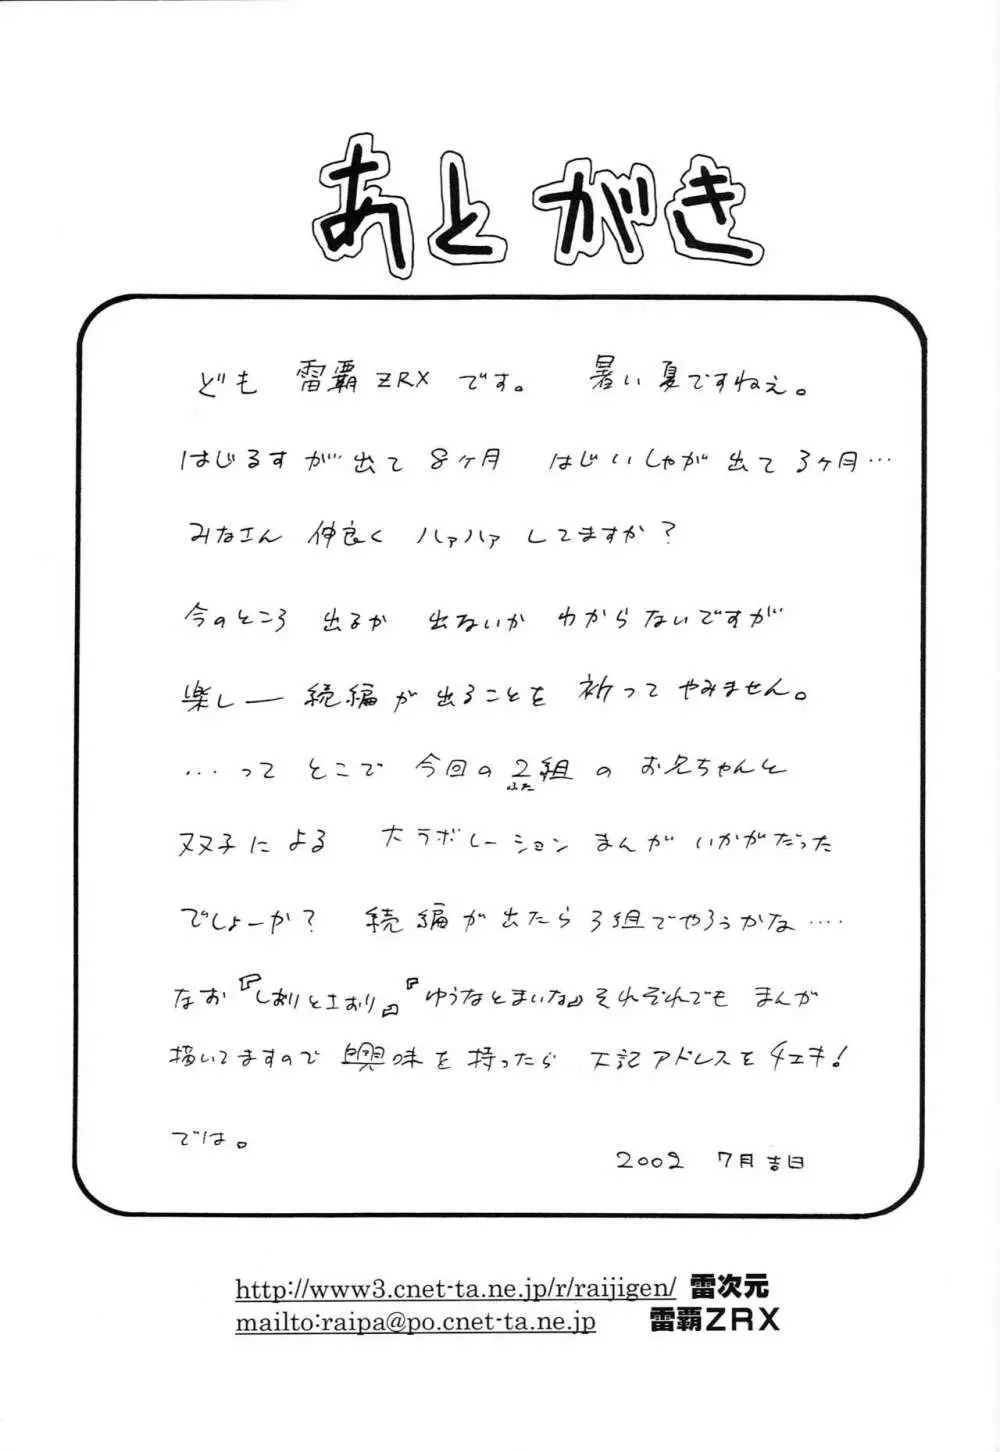 あとがき
ども 雷覇ZRX です。 暑い夏ですねぇ。
はじるすが出て 8ヶ月 はじいしゃが出て 3ヶ月…
みなさん 仲良く ハァハァ してますか?
今のところ 出るか 出ないか わからないですが
楽しー 続編が出ることを 祈って やみません。
…って とこで 今回の 2組 の お兄ちゃんと
ふた
双子による 大ラボレーション まんが いかがだった
でしょーか? 続編が出たら 3組でやろうかな‥‥
なお『しおりとさおり』『ゆうなとまいな』それぞれでも まんが
描いてますので 興味を 持ったら 下記アドレスを チェキ!
では。
2002 7月吉日
http://www3.cnet-ta.ne.jp/r/raijigen/ 雷次元
mailto:raipa@po.cnet-ta.ne.jp 雷覇ZRX